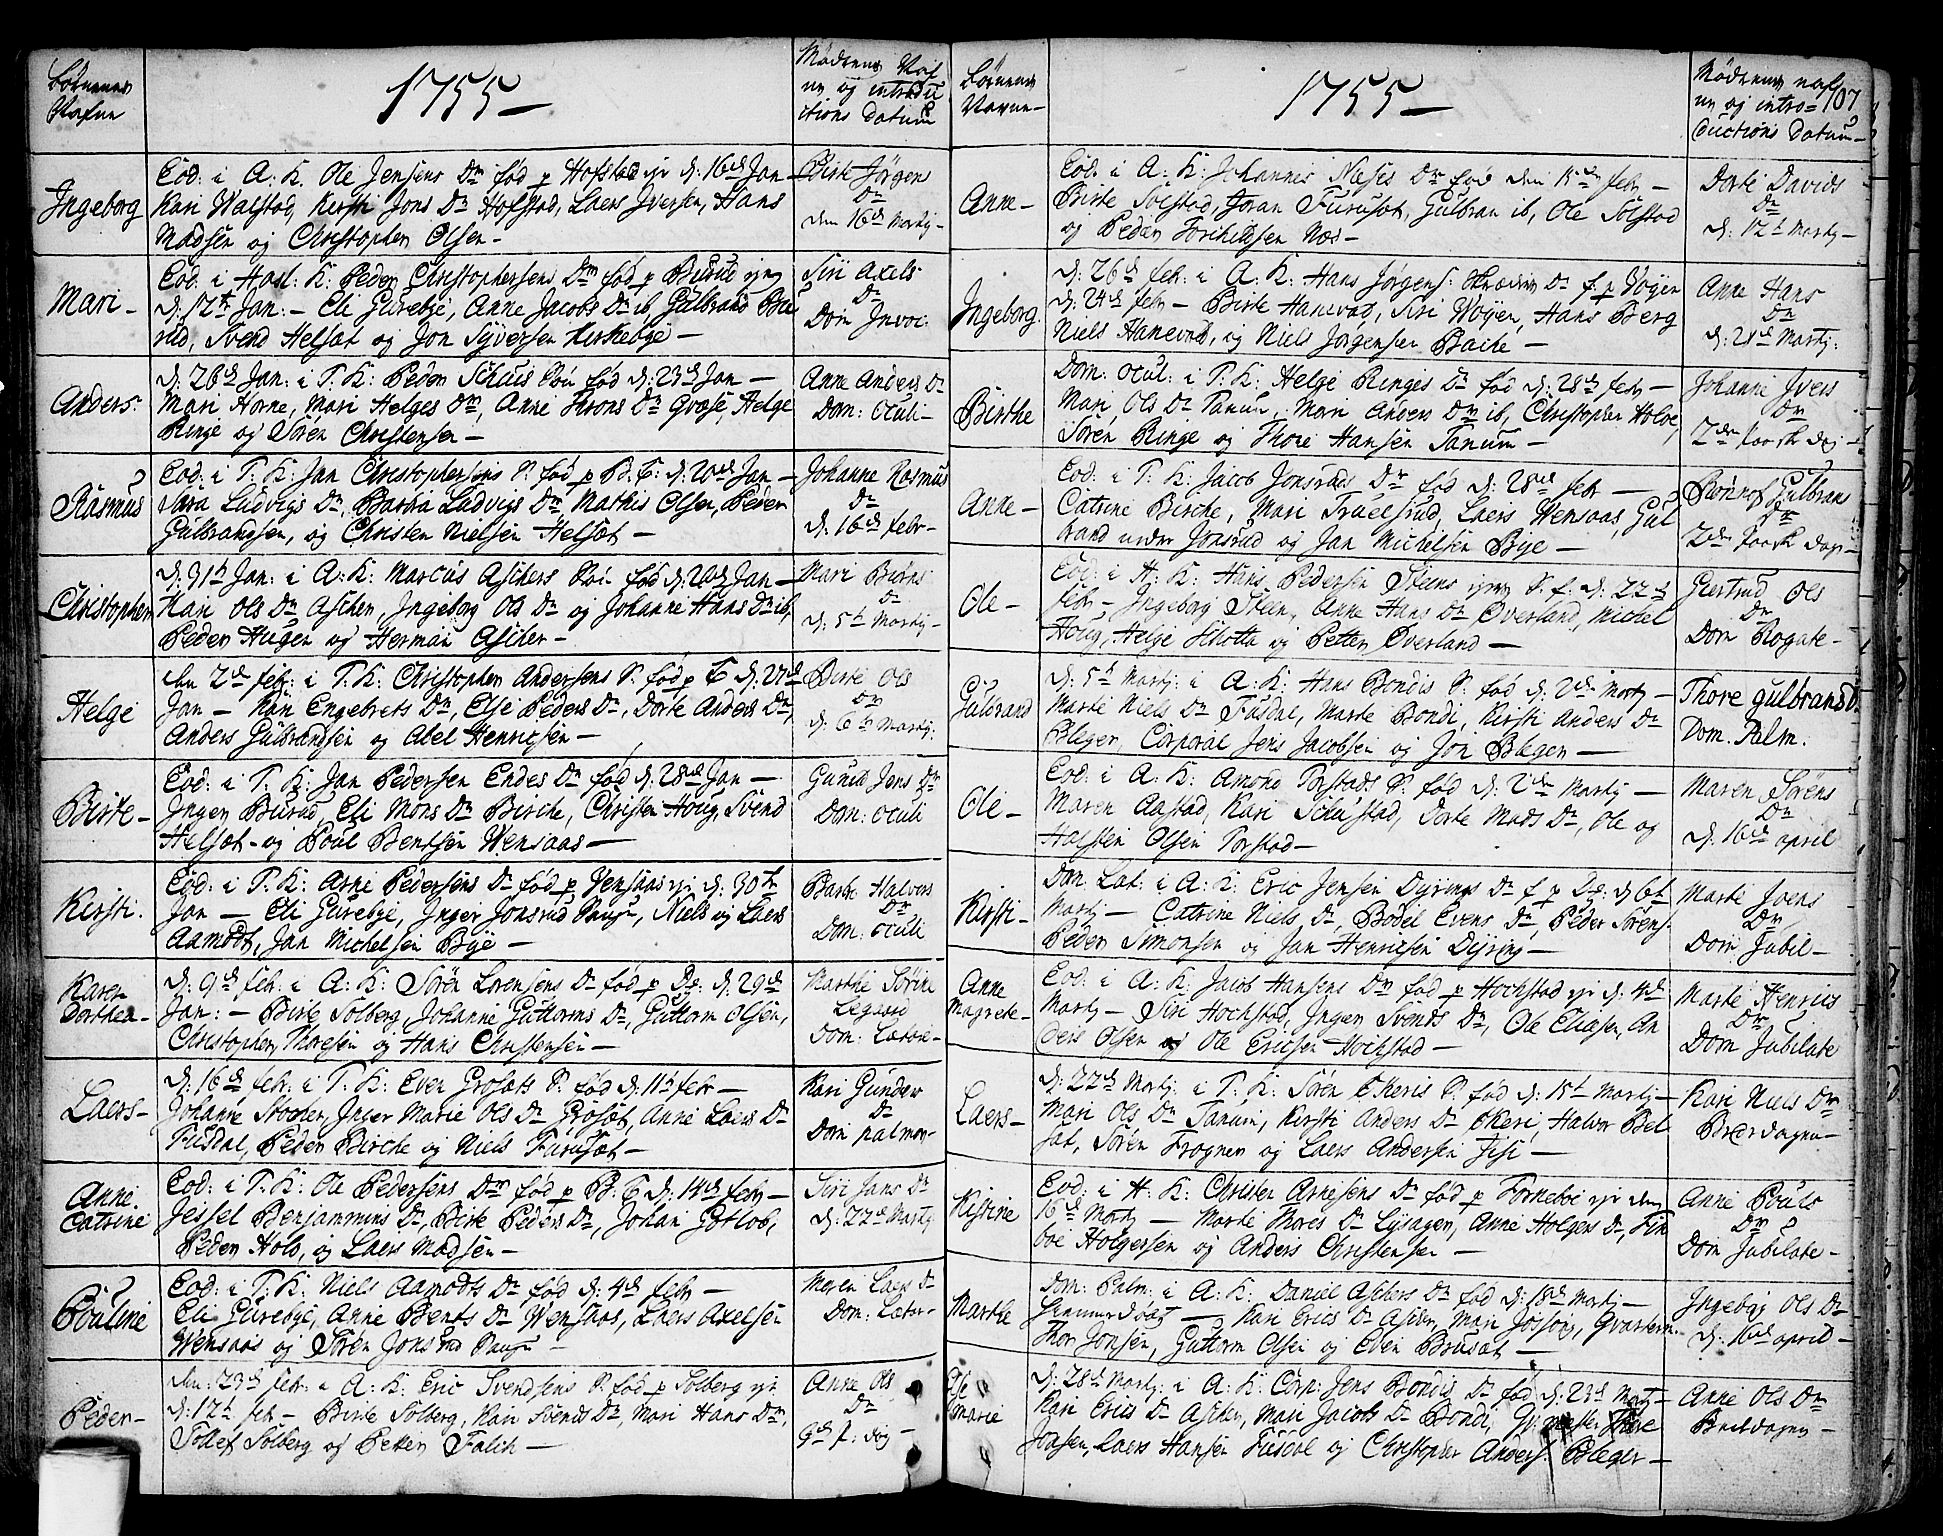 Børnenes
Nafne
1755 –
Mødrenes Naf
ne og introdu
ctions Datum
Ingeborg
Eod: i A: K. Ole Jensens Dr fød p Hofstad d: 16de Jan –
Kari Walstad, Kirsti Jons Dr Hofstad, Laers Iversen, Hans
Madsen og Christopher Olsen –
Birte Jørgens
Dr
den 16de Martij –
Mari –
Eod: i Hasl: K: Peder Christophersens Dr fød p Burud
d: 12te Jan: – Eli Gurebye, Anne Jacobs Dr ib, Gulbrand Bu
rud, Svend Helset og Jon Syversen Kirkebye –
Siri Axels
Dr
Dom Invoc:
Anders
d: 26de Jan: i T: K: Peder Schuis Søn fød d: 23de Jan –
Mari Horne, Mari Helges Dr, Anne Trons Dr Gvase, Helge
Ringe og Søren Christensen –
Anne Anders Dr
Dom: Oculi –
Rasmus
Eod: i T: K: Jan Christophersens S: fød p B: E: d: 20de Jan –
Sara Ludvigs Dr, Barbra Ludvigs Dr, Mathis Olsen, Peder
Gulbrandsen, og Christen Nielsen Helset –
Johanne Rasmus
Dr
d: 16de febr –
Christopher
d: 31te Jan: i A: K: Marcus Aschers Søn fød d: 20de Jan –
Kari Ols Dr Ascher, Ingeborg Ols Dr og Johanne Hans Dr ib,
Peder Hugen og Herman Ascher –
Mari Biørns
Dr
d: 5te Martij –
Helge
den 2de febr: i T: K: Christopher Andersens S: fød p E d: 27de
Jan – Kari Engebrets Dr, Else Peders Dr, Dorte Anders Dr,
Anders Gulbrandsen og Abel Henricsen –
Birte Ols
Dr
d: 6te Martij:
Birte –
Eod: i T: K: Jan Pedersen Endes Dr fød d: 28de Jan –
Inger Burud, Eli Mons Dr Birche, Christen Houg, Svend
Helset – og Poul Bentsen Wensaas –
Gunild Jens Dr
Dom: Oculi
Kirsti.
Eod: i T: K: Arne Pedersens Dr fød p Wensaas d: 30te
Jan – Eli Gurebye, Inger Jonsrud, Niels og Laers
Aamodt, Jan Michelsen Bye –
Barbr Halvors
Dr
Dom: Oculi
Karen
Dorthea –
d: 9de febr: i A: K: Søren Lorensens Dr fød p d: 29de
Jan: – Birte Solberg, Johanne Guttorms Dr, Guttorm Olsen,
Christopher Thoresen og Hans Christensen –
Marthe Sørine
Legaard
Dom: Lætare –
Laers –
d: 16de febr: i T: K: Even Grosets S: fød d: 11te febr –
Johanne Storsten, Inger Marie Ols Dr Groset, Anne Laers Dr
Fusdal, Peder Birche og Niels Furuset –
Kari Gunder
Dr
Dom palmar –
Anne
Catrine
Eod: i T: K: Ole Pedersens Dr fød p B: E d: 14de febr –
Jessel Benjammins Dr, Birte Peders Dr, Johan Gotlob,
Peder Holo, og Laers Madsen –
Siri Jans Dr
d: 22de Martij
Pouline
Eod: i T: K: Niels Aamodts Dr fød d: 4de febr –
Eli Gurebye, Anne Bents Dr Wensaas, Laers Axelsen
Wensaas og Søren Jonsrud –
Maren Laers Dr
Dom: Lætar –
Peder –
den: 23de febr: i A: K: Eric Svendsens S: fød p Solberg
d: 12te febr – Birte Solberg, Kari Svends Dr, Mari Hans Dr,
Tollef Solberg og Petter Falck –
Anne Ols
Dr
9de f: dag –
Børnenes
Navne –
1755 –
Mødrenes naf
ne og intro=
ductions Datum –
107
Anne –
Eod: i A: K: Johannes Neses Dr fød den 15de febr –
Birte Solstad, Joran Furuset, Gulbran ib, Ole Solstad
og Peder Torchildsen Næs –
Dorte Davids
Dr
d: 12te Martij –
Ingeborg.
d: 26de febr: i A: K: Hans Jørgens: Dr f. p Woyen
d: 24de febr – Birte Hanevad, Siri Woyen, Hans Berg
Niels Hanevad, og Niels Jørgensen Bache –
Anne Hans
Dr
d: 28de Martij:
Birthe
Dom: Ocul: i T: K: Helge Ringes Dr fød d: 28de febr –
Mari Ols Dr Tanum, Mari Anders Dr ib, Christopher Holve,
Søren Ringe og Thore Hansen Tanum –
Johanne Ivers
Dr
2den Paaske dag –
Anne –
Eod: i T: K: Jacob Jonsruds Dr fød d: 28de febr –
Catrine Birche, Mari Truelsrud, Laers Wensaas, Gul
brand Jonsrud og Jan Michelsen Bye –
Rønnof Gulbrans
Dr
2den Paaske dag –
Ole –
Eod: i H: K: Hans Pedersen Steens S. f: d: 22de
febr – Ingeborg Steen, Anne Hans Dr Øverland, Michel
Houg, Helge Schotta og Petter Øverland –
Giertrud Ols
Dr
Dom Rogate –
Gulbrand
d: 5te Martij: i A: K: Hans Bondis S: fød d: 2de Martij –
Marte Niels Dr Fusdal, Marte Bondi, Kirsti Anders Dr
Bleger, Corporal Jens Jacobsen og Jon Bleger –
Thore gulbrandsd.
Dom. Palm.
Ole –
Eod: i A: K: Amond Torstads S: fød d: 2den Martij –
Maren Aastad, Kari Schustad, Dorte Mads Dr, Ole og
Halsten Olsen Torstad –
Maren Sørens
Dr
d: 16de april
Kirsti –
Dom Lat: i A: K: Eric Jensen Dyrings Dr f p d: 6te
Martij – Catrine Niels Dr, Bodel Evens Dr, Peder Sørens:
Peder Simonsen og Jan Henricsen Dyring –
Marte Joens
Dr
Dom Jubil –
Anne
Magrete –
Eod: i A: K: Jacob Hansens Dr fød p Hochstad d: 4de
Martij – Siri Hochstad, Inger Svends Dr, Ole Eliasen, An
ders Olsen og Ole Ericsen Hochstad –
Marte Henrics
Dr
Dom Jubilate
Laers –
d: 22de Martij: i T: K: Søren Ekeris S: fød d: 15te Martij –
Mari Ols Dr Tanum, Kirsti Anders Dr Ekeri, Halvor Bel
set, Søren Frogner og Laers Andersen –
Kari Niels Dr
Bededagen –
Kistine
Eod: i H: K: Christen Arnesens Dr fød p Forneboe den
16de Martij – Marte Thores Dr Lysager, Anne Holgers Dr, Fin
boe Holgersen og Anders Christensen –
Anne Pouls
Dr
Dom Jubilate –
Marthe
Dom: Palm: i A: K: Daniel Aschers Dr fød d: 18de Martij –
– Kari Erics Dr Ascher, Mari Jossong,
Thor Jonsen, Guttorm Olsen og Even Bruset –
Ingebor Ols Dr
d: 16de april –
Else
Marie
d: 28de Martij: i A: K: Corp: Jens Bondis Dr fød d: 23de Martij –
Kari Erics Dr Ascher, Mari Jacobs Dr Bondi, Thore
Jonsen, Laers Hansen Fusdal og Christopher Anders: Bleger –
Anne Ols Dr
Bededagen –